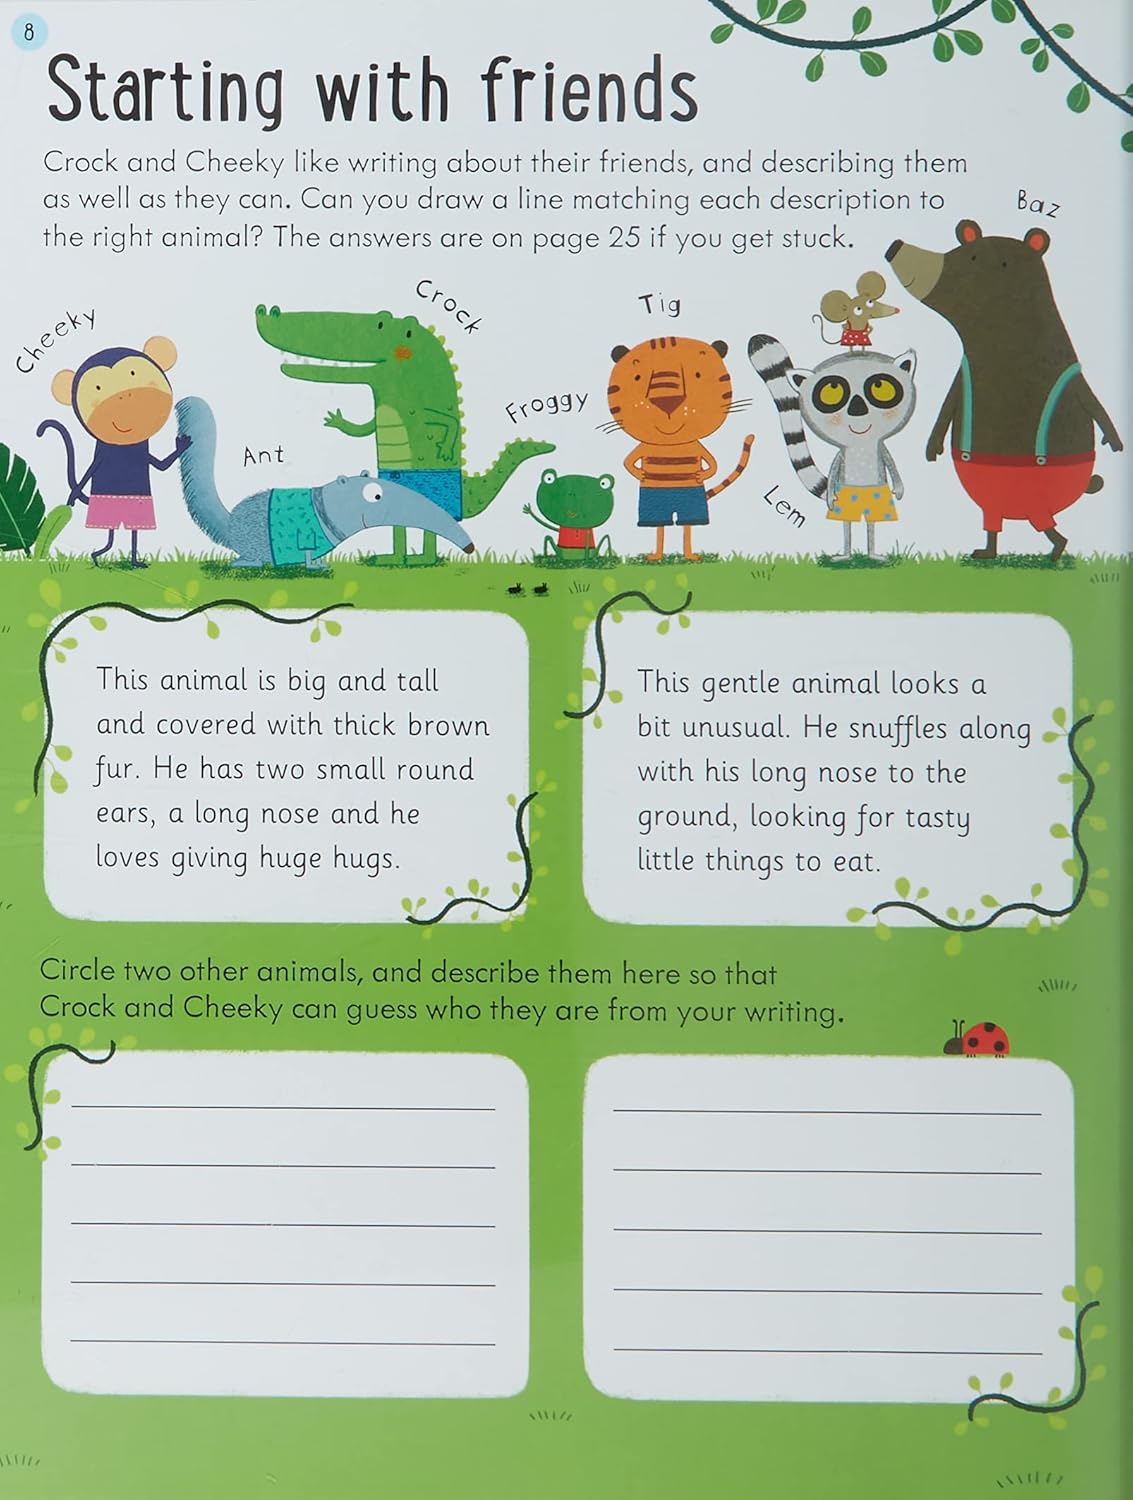 8
Starting with friends
Crock and Cheeky like writing about their friends, and describing them
as well as they can. Can you draw a line matching each description to
the right animal? The answers are on page 25 if you get stuck.
Baz
Crock
Tig
Cheeky
Froggy
Ant
Lem
This animal is big and tall
and covered with thick brown
fur. He has two small round
ears, a long nose and he
loves giving huge hugs.
This gentle animal looks a
bit unusual. He snuffles along
with his long nose to the
ground, looking for tasty
little things to eat.
Circle two other animals, and describe them here so that
Crock and Cheeky can guess who they are from your writing.